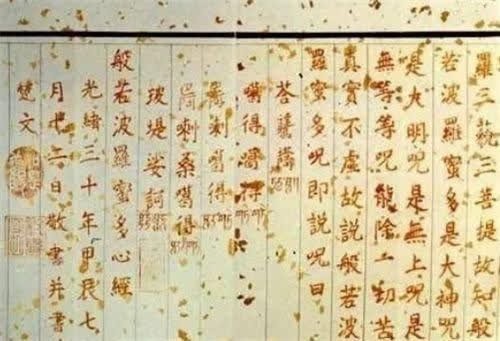 羅三藐三菩提故知般
若波羅蜜多是大神咒
是大明咒是無上咒是
無等等咒能除一切苦
真實不虛故說般若波
羅蜜多咒即說咒曰
噶得噶得
喇噶得
喇桑噶得
堤娑訶
般若波羅蜜多心經
光緒三十年甲辰七
月六日敬書并書
梵文